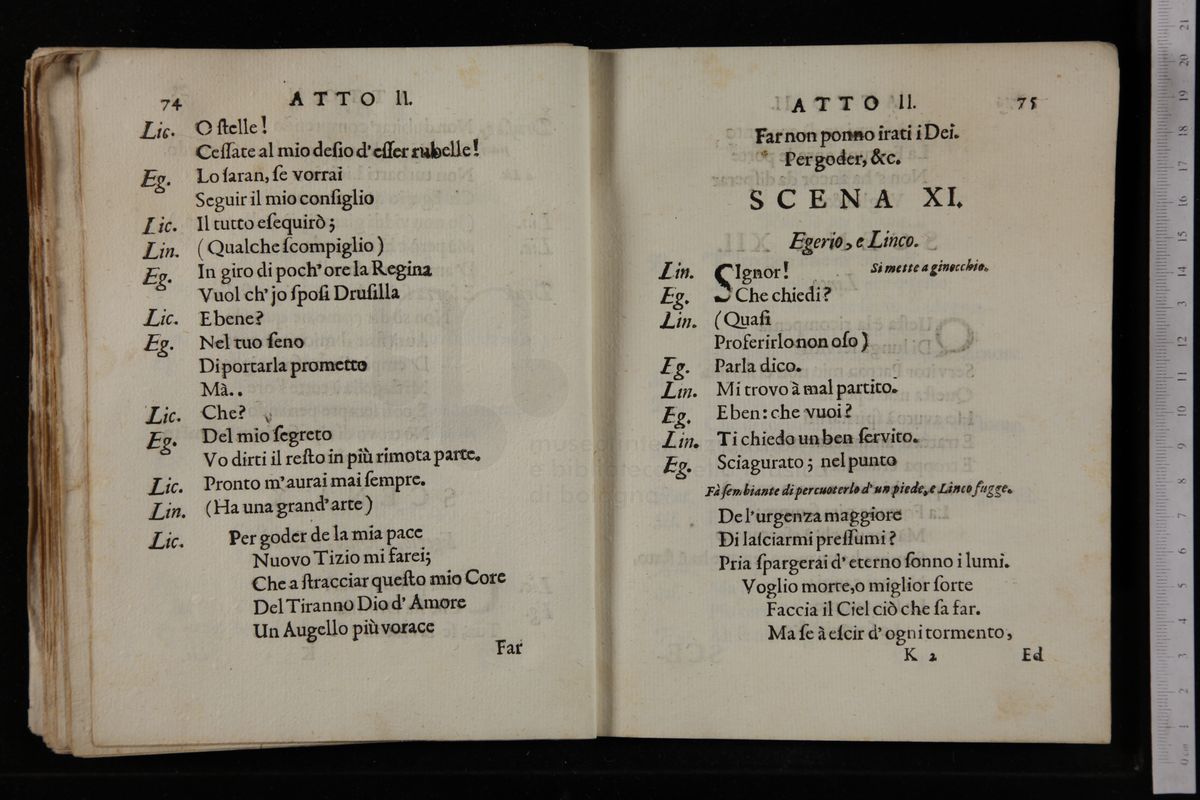 74 ATTO II.
Lic. O ſtelle!
Ceſſate al mio deſio d'eſſer rubelle!
Eg. Lo ſaran, ſe vorrai
Seguir il mio conſiglio
Lic. Il tutto eſequirò;
Lin. (Qualche ſcompiglio)
Eg. In giro di poch' ore la Regina
Vuol ch' jo ſpoſi Druſilla
Lic. E bene?
Eg. Nel tuo ſeno
Di portarla prometto
Mà..
Lic. Che?
Eg. Del mio ſegreto
Vo dirti il reſto in più rimota parte.
Lic. Pronto m'aurai mai ſempre.
Lin. (Ha una grand' arte)
Lic. Per goder de la mia pace
Nuovo Tizio mi farei;
Che a ſtracciar queſto mio Core
Del Tiranno Dio d' Amore
Un Augello più vorace
Far
ATTO II. 75
Far non ponno irati i Dei.
Per goder, &c.
SCENA XI.
Egerio, e Linco.
Lin. SIgnor! Si mette a ginocchio.
Eg. Che chiedi?
Lin. (Quaſi
Proferirlo non oſo)
Eg. Parla dico.
Lin. Mi trovo à mal partito.
Eg. E ben: che vuoi?
Lin. Ti chiedo un ben ſervito.
Eg. Sciagurato; nel punto
Fà ſembiante di percuoterlo d'un piede, e Linco fugge.
De l'urgenza maggiore
Di laſciarmi preſſumi?
Pria ſpargerai d' eterno ſonno i lumi.
Voglio morte, o miglior ſorte
Faccia il Ciel ciò che ſa far.
Ma ſe à eſcir d' ogni tormento,
K 2 Ed